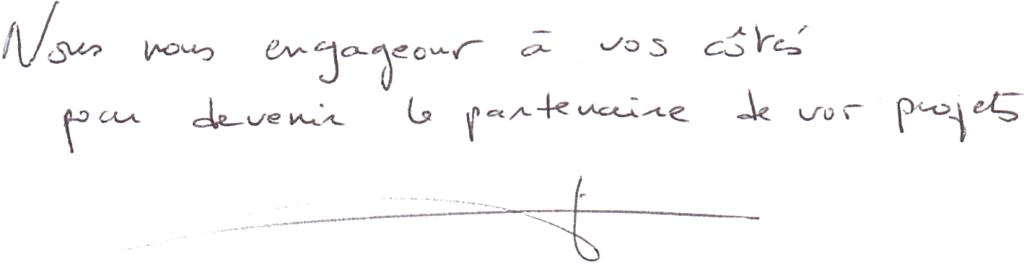 Nous nous engageons à vos côtés
pour devenir le partenaire de vos projets